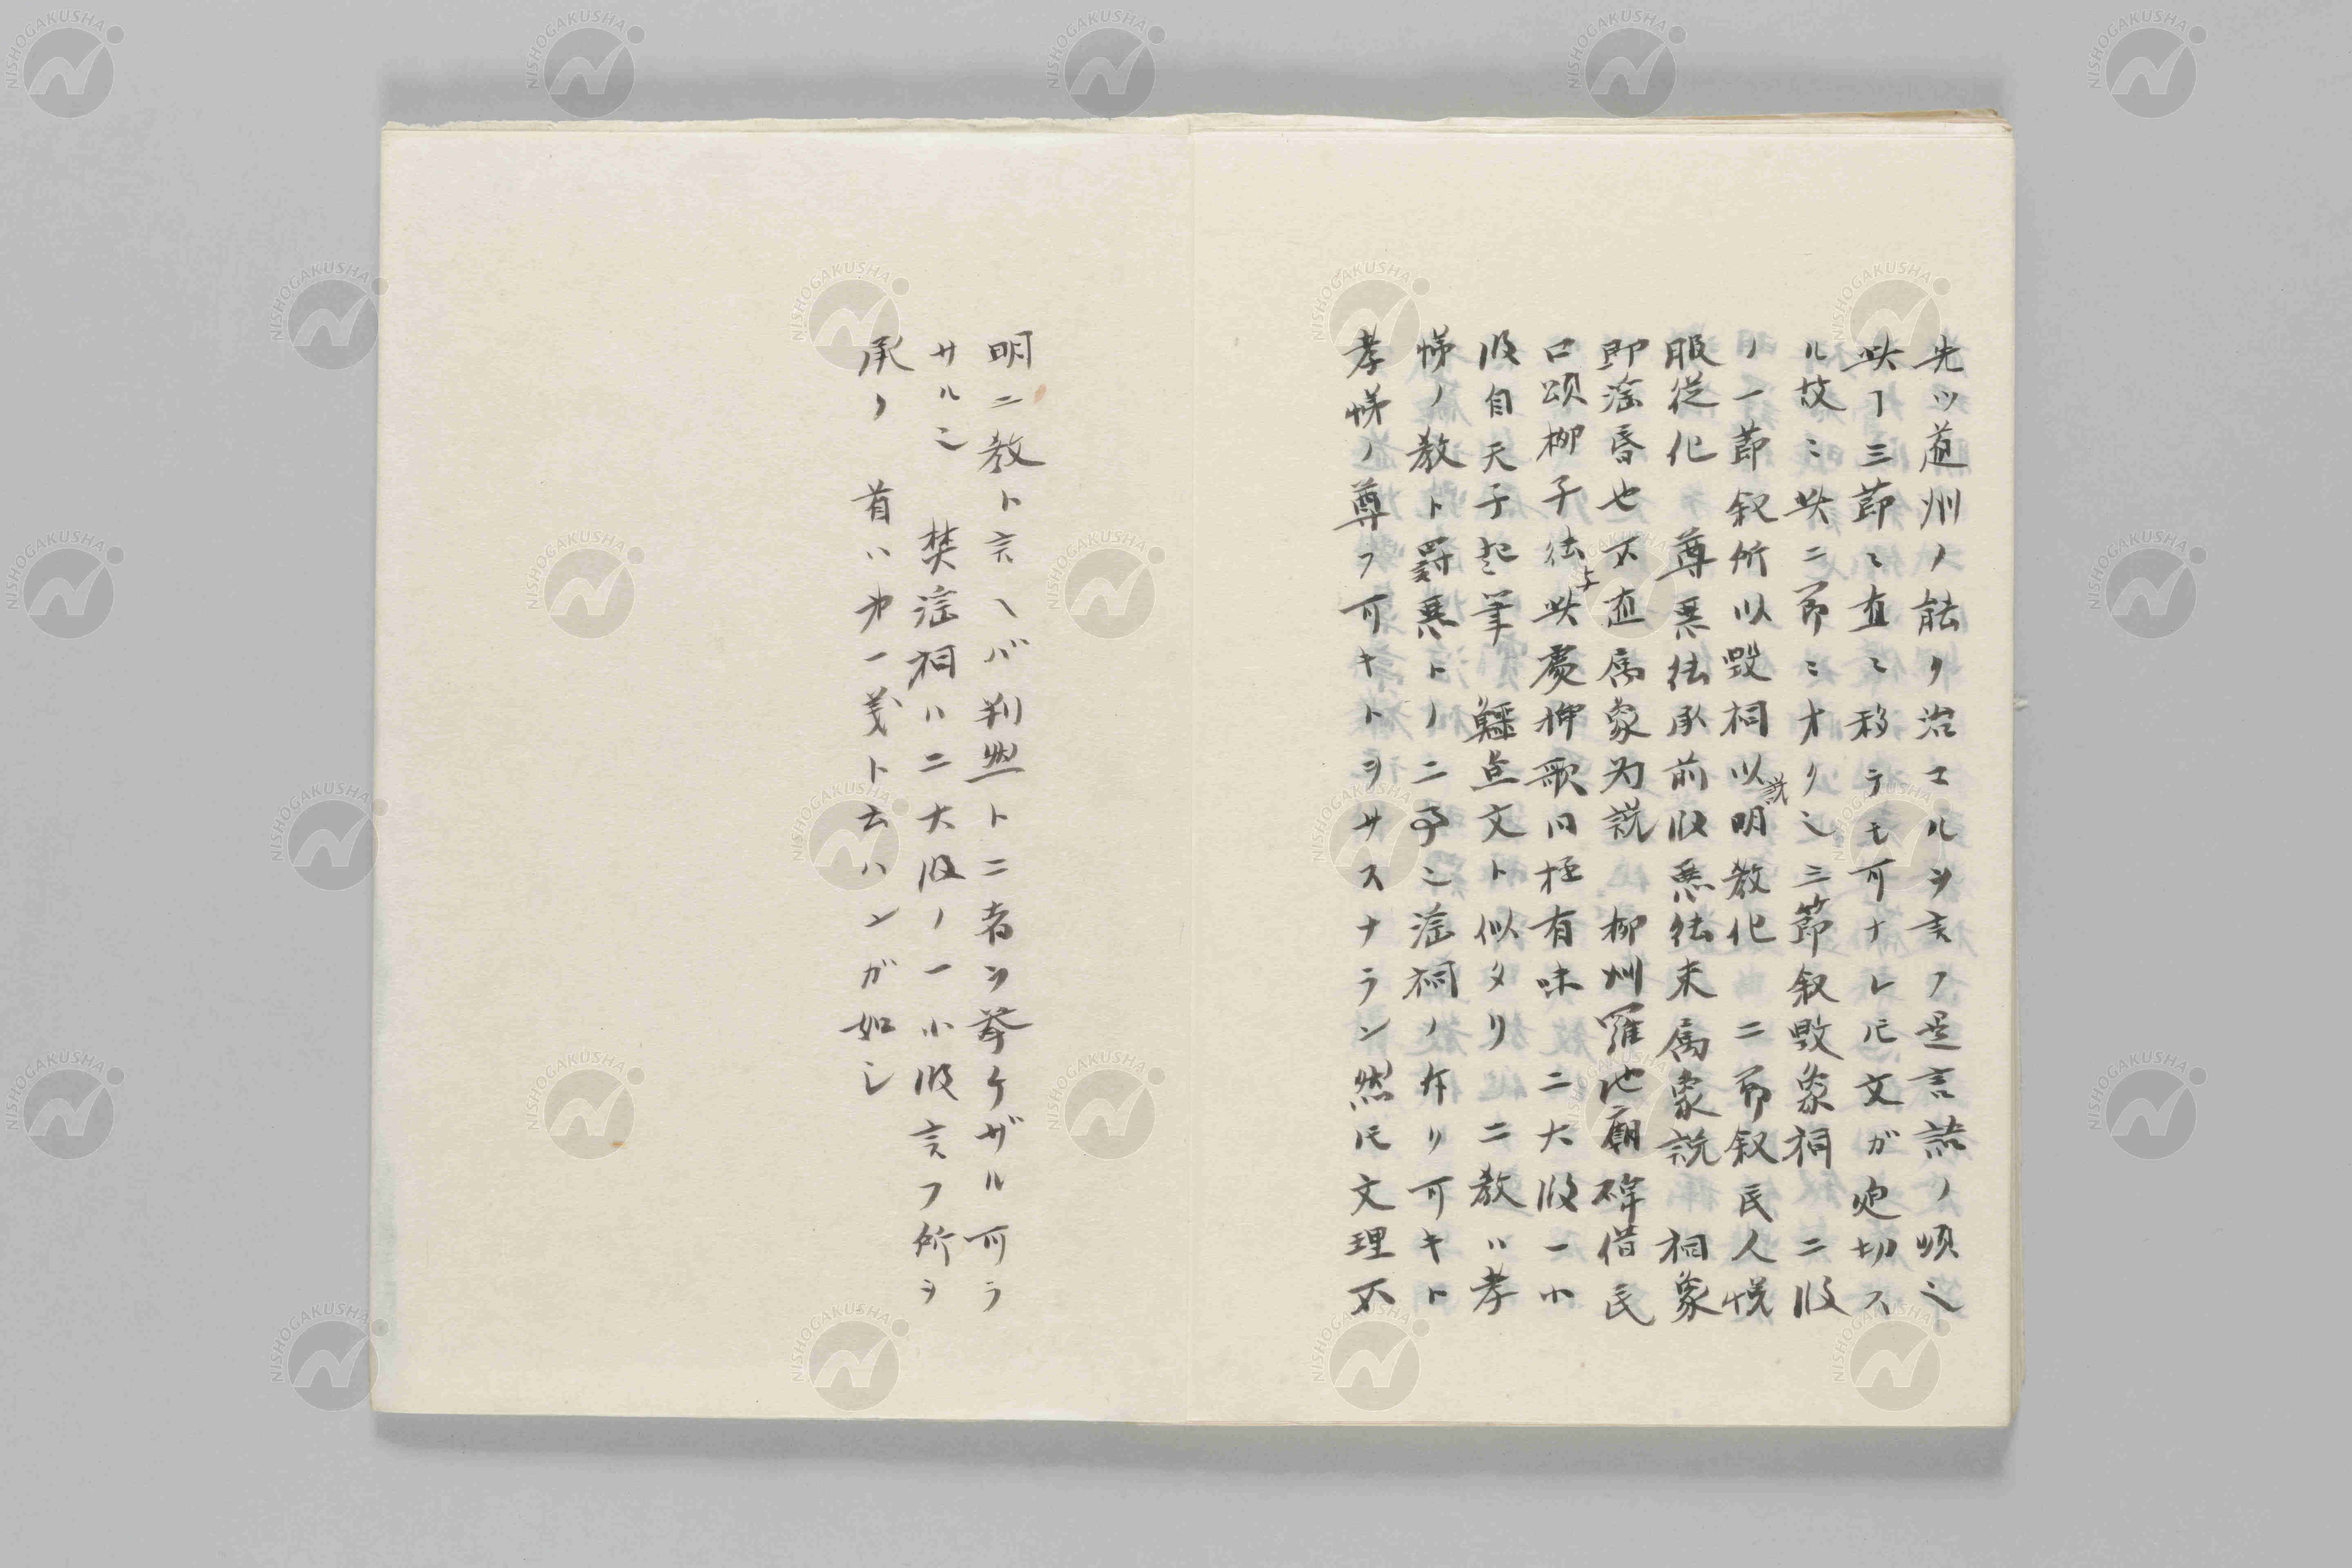 先ツ道州ノ能ク治マルヲ言フ是言詰ノ順也
此ヿ三節ニ直ニ移ラモ可ナレ𪜈文ガ迫切ス
ル故ニ此ニ節ニオリ也三節叙毀象祠ニ段
ノ一節叙所以毀祠以説明教化 二節叙民人悦
服従化 尊悪法承前段悪法来属象説 祠象
即淫昏也不直属象為説 柳州羅池廟碑借民
口頌柳子法与此處押歌同極有味 二大段一小
段自天子起筆 鱷魚文ト似タリ 二教ハ孝
悌ノ教ト罸悪トノ二事也淫祠ノ在リ可キト
孝悌ノ尊フ可キトヲサスナラン然𪜈文理不
明ニ教ト言ヘバ判然ト二者ヲ挙ケザル可ラ
サル也 焚淫祠ハ二大段ノ一小段言フ所ヲ
承ク 首ハ第一義ト云ハンガ如シ
NISHOGAKUSHA